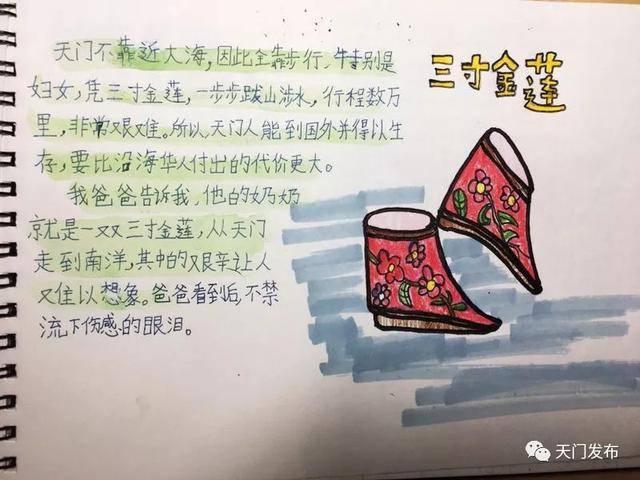 三寸金莲
天门不靠近大海，因此全靠步行、特别是
妇女，凭三寸金莲，一步步跋山涉水，行程数万
里，非常艰难。所以，天门人能到国外并得以生
存，要比沿海华人付出的代价更大。
我爸爸告诉我，他的奶奶
就是一双三寸金莲，从天门
走到南洋，其中的艰辛让人
难以想象。爸爸看到后，不禁
流下伤感的眼泪。
天门发布